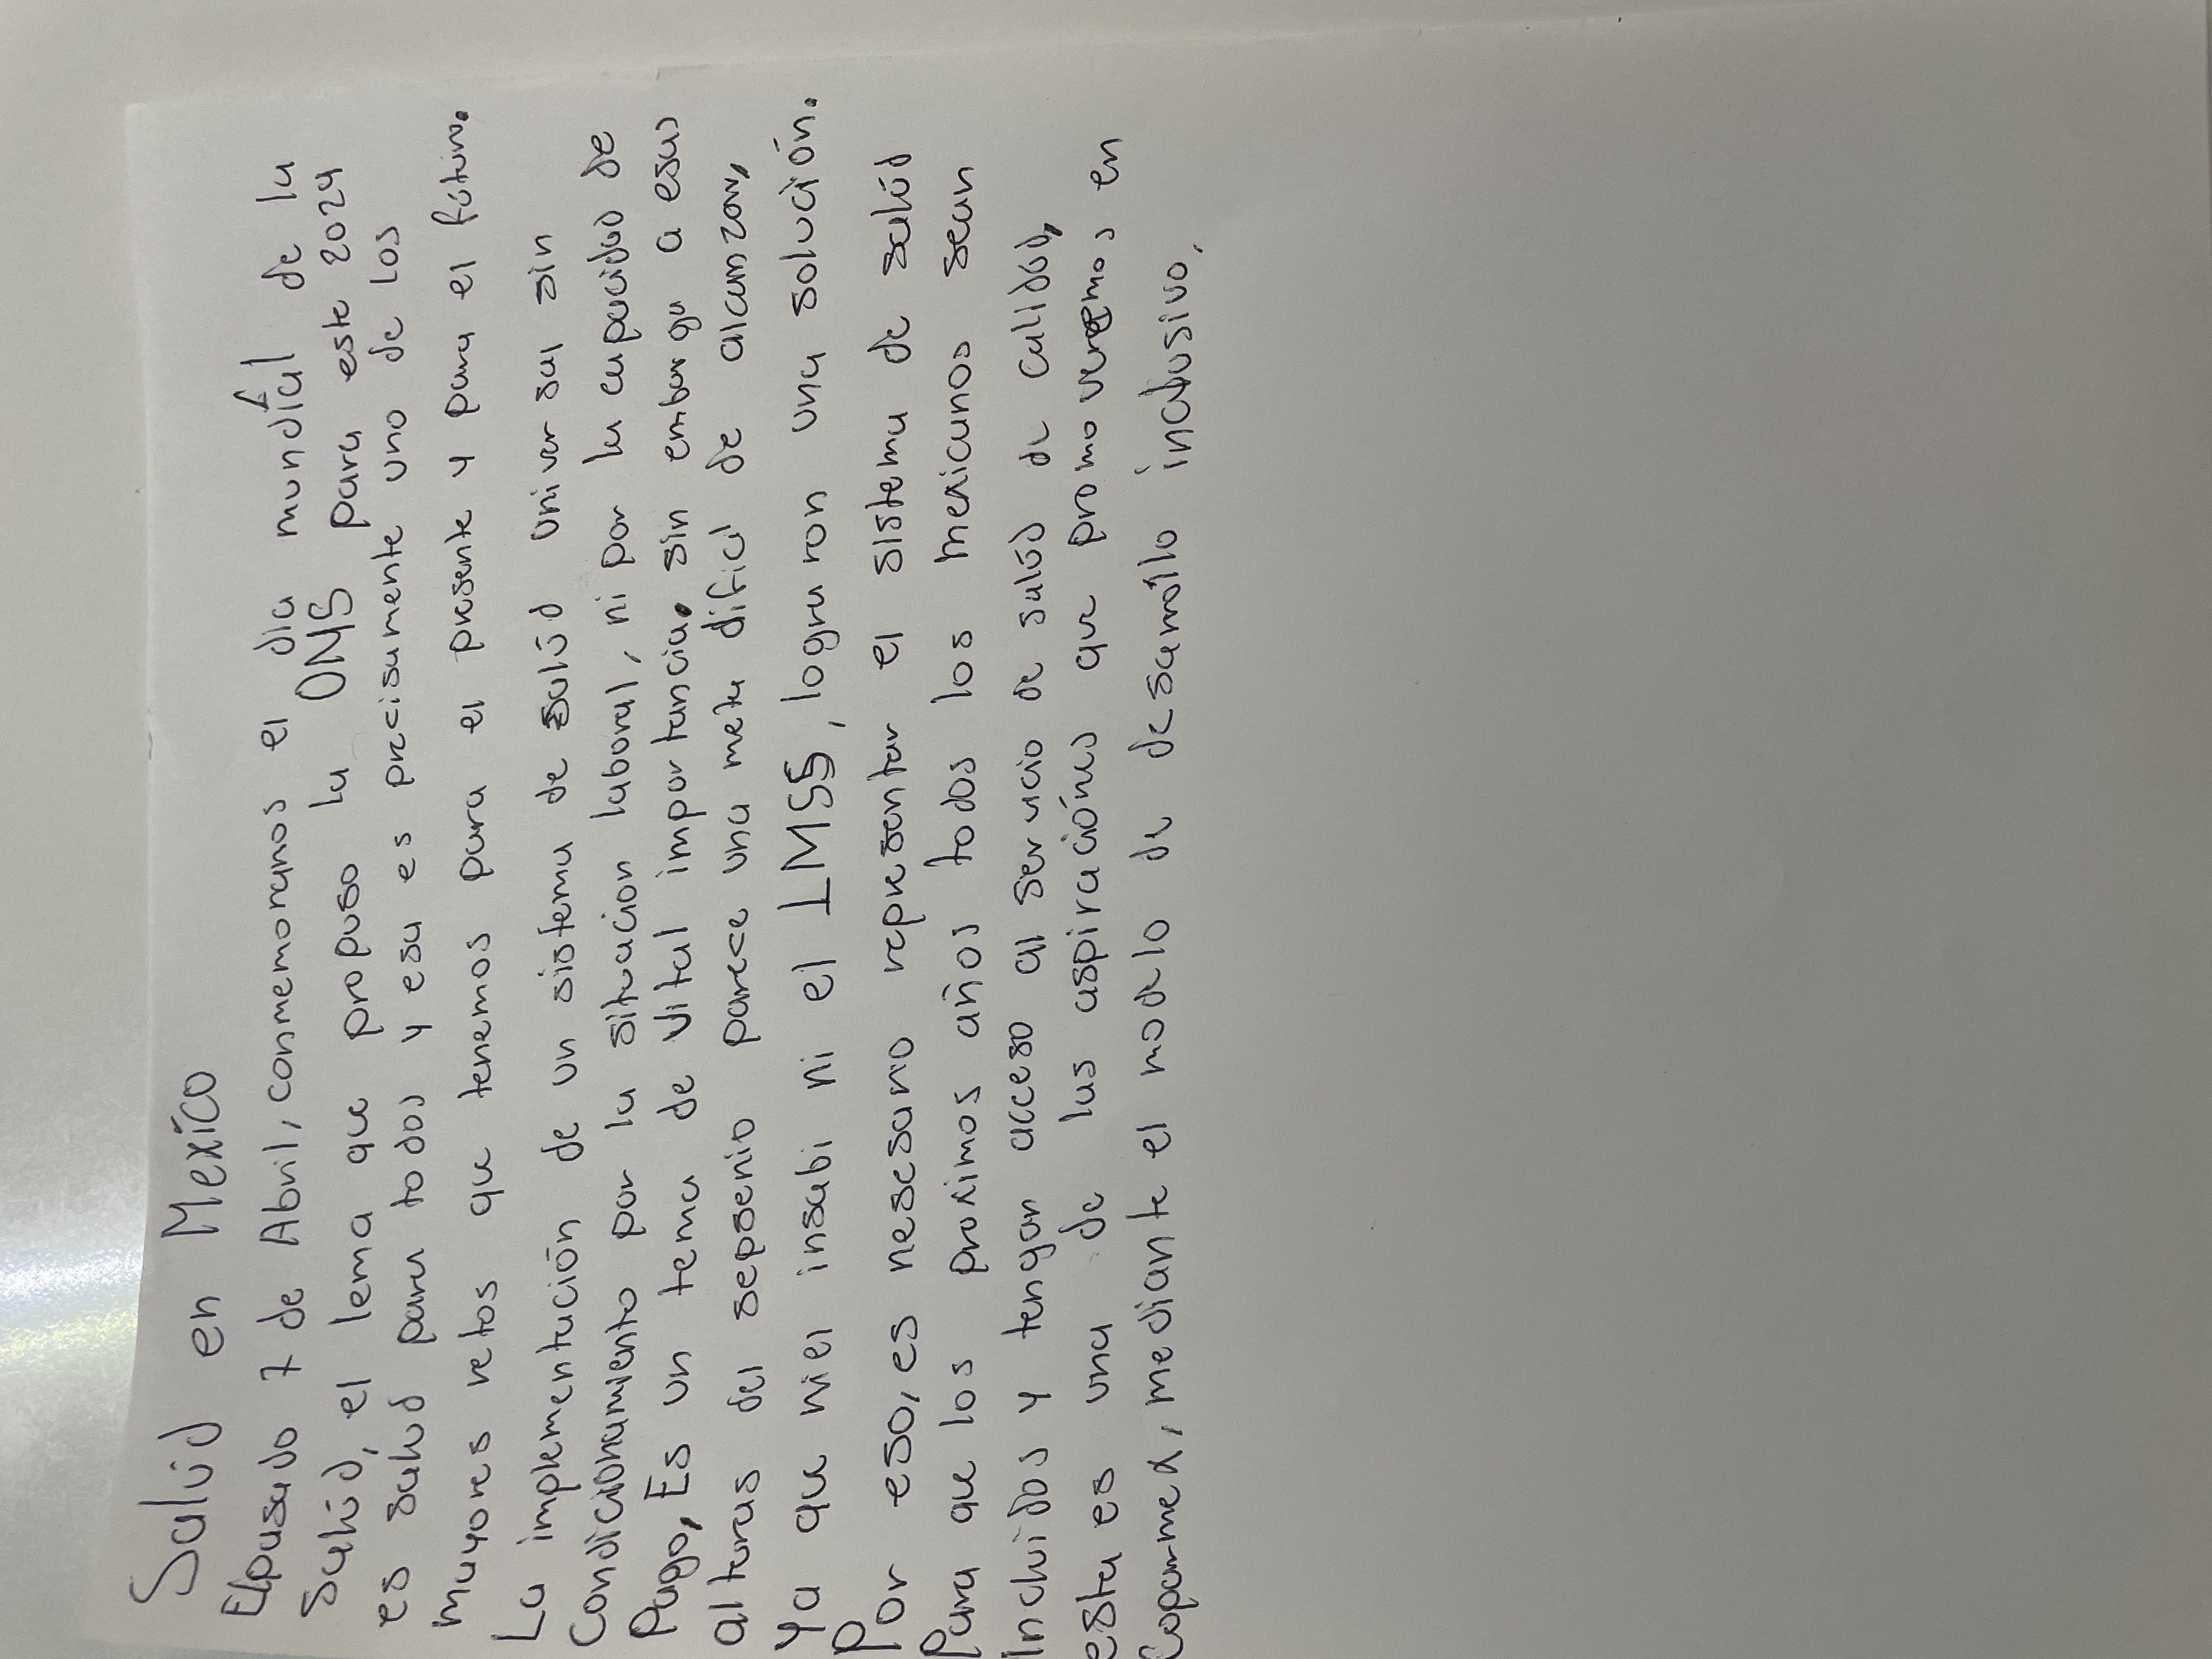 Salúd en Mexíco
El pasado 7 de Abril, conmemoramos el dia mundíal de la
Salúd, el lema que propuso la OMS para este 2024
es salud para todos y esa es precisamente uno de los
mayores retos que tenemos para el presente y para el fúturo.
La implementación de un sistema de salúd universal sin
condicionamiento por la situacion laboral, ni por la capacidad de
Pago, Es un tema de vital importancia, sin embargo a esas
alturas del sepsenio parece una meta dificil de alcanzar,
Ya que ni el insabi ni el IMSS, lograron una solución.
Por eso, es nesesario representar el sistema de salúd
Para que los proximos años todos los mexicanos sean
Incluidos y tengan acceso al servicio de salúd de calidad,
esta es una de las aspiraciónes que promoveremos en
Coparmex, mediante el modelo de desarrollo inclusivo,